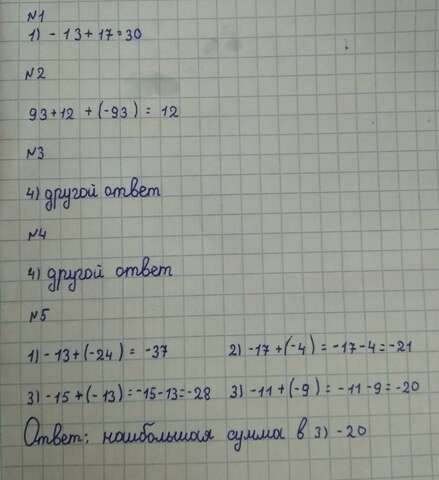 №1
1) - 13 + 17 = 30
№2
93 + 12 + (-93) = 12
№3
4) другой ответ
№4
4) другой ответ
№5
1) - 13 + (-24) = -37 2) -17 + (-4) = -17 - 4 = -21
3) -15 + (-13) = -15 - 13 = -28 3) -11 + (-9) = -11 - 9 = -20
Ответ: наибольшая сумма в 3) -20